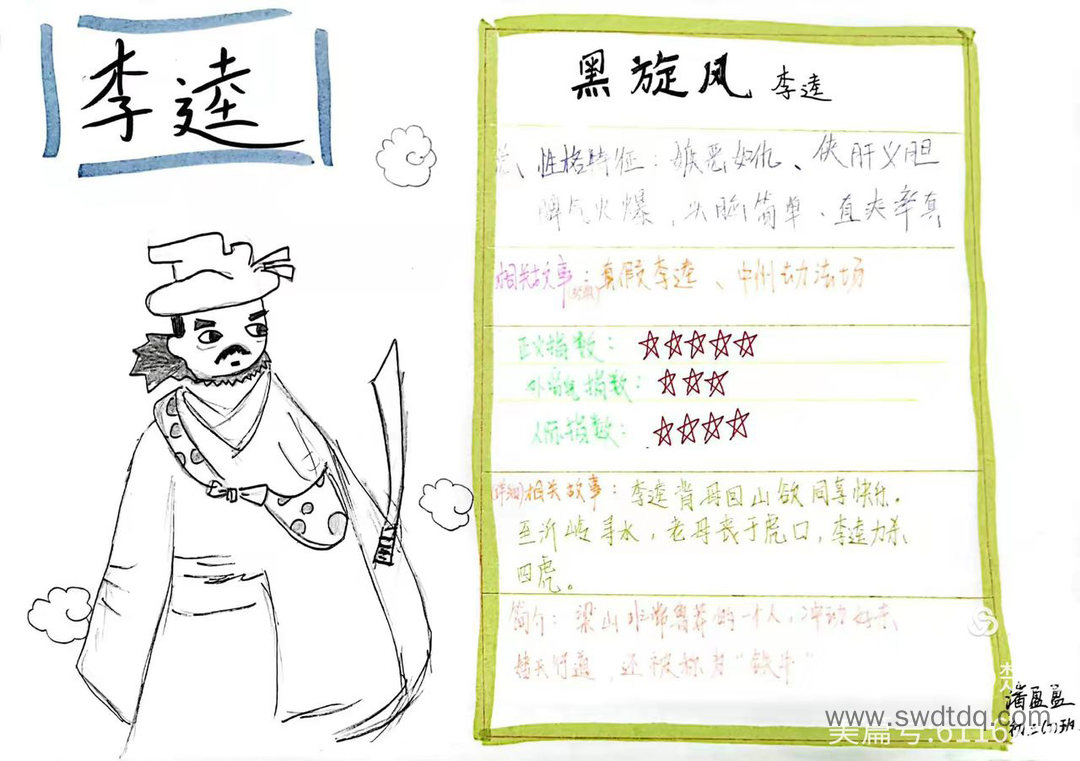 李逵
黑旋风 李逵
性格特征：嫉恶如仇、侠肝义胆
脾气火爆，头脑简单、直爽率真
相关故事：真假李逵、中州劫法场
正义指数：☆☆☆☆☆
外貌指数：☆☆☆
人际指数：☆☆☆☆
(详细)相关故事：李逵背母回山欲同享快乐.
至沂岭寻水，老母丧于虎口，李逵力杀
四虎。
简介：梁山非常鲁莽的一个人，冲动好杀
替天行道，还被称为“铁牛”
潘盈盈
www.swdtdq.com
美篇号:6116